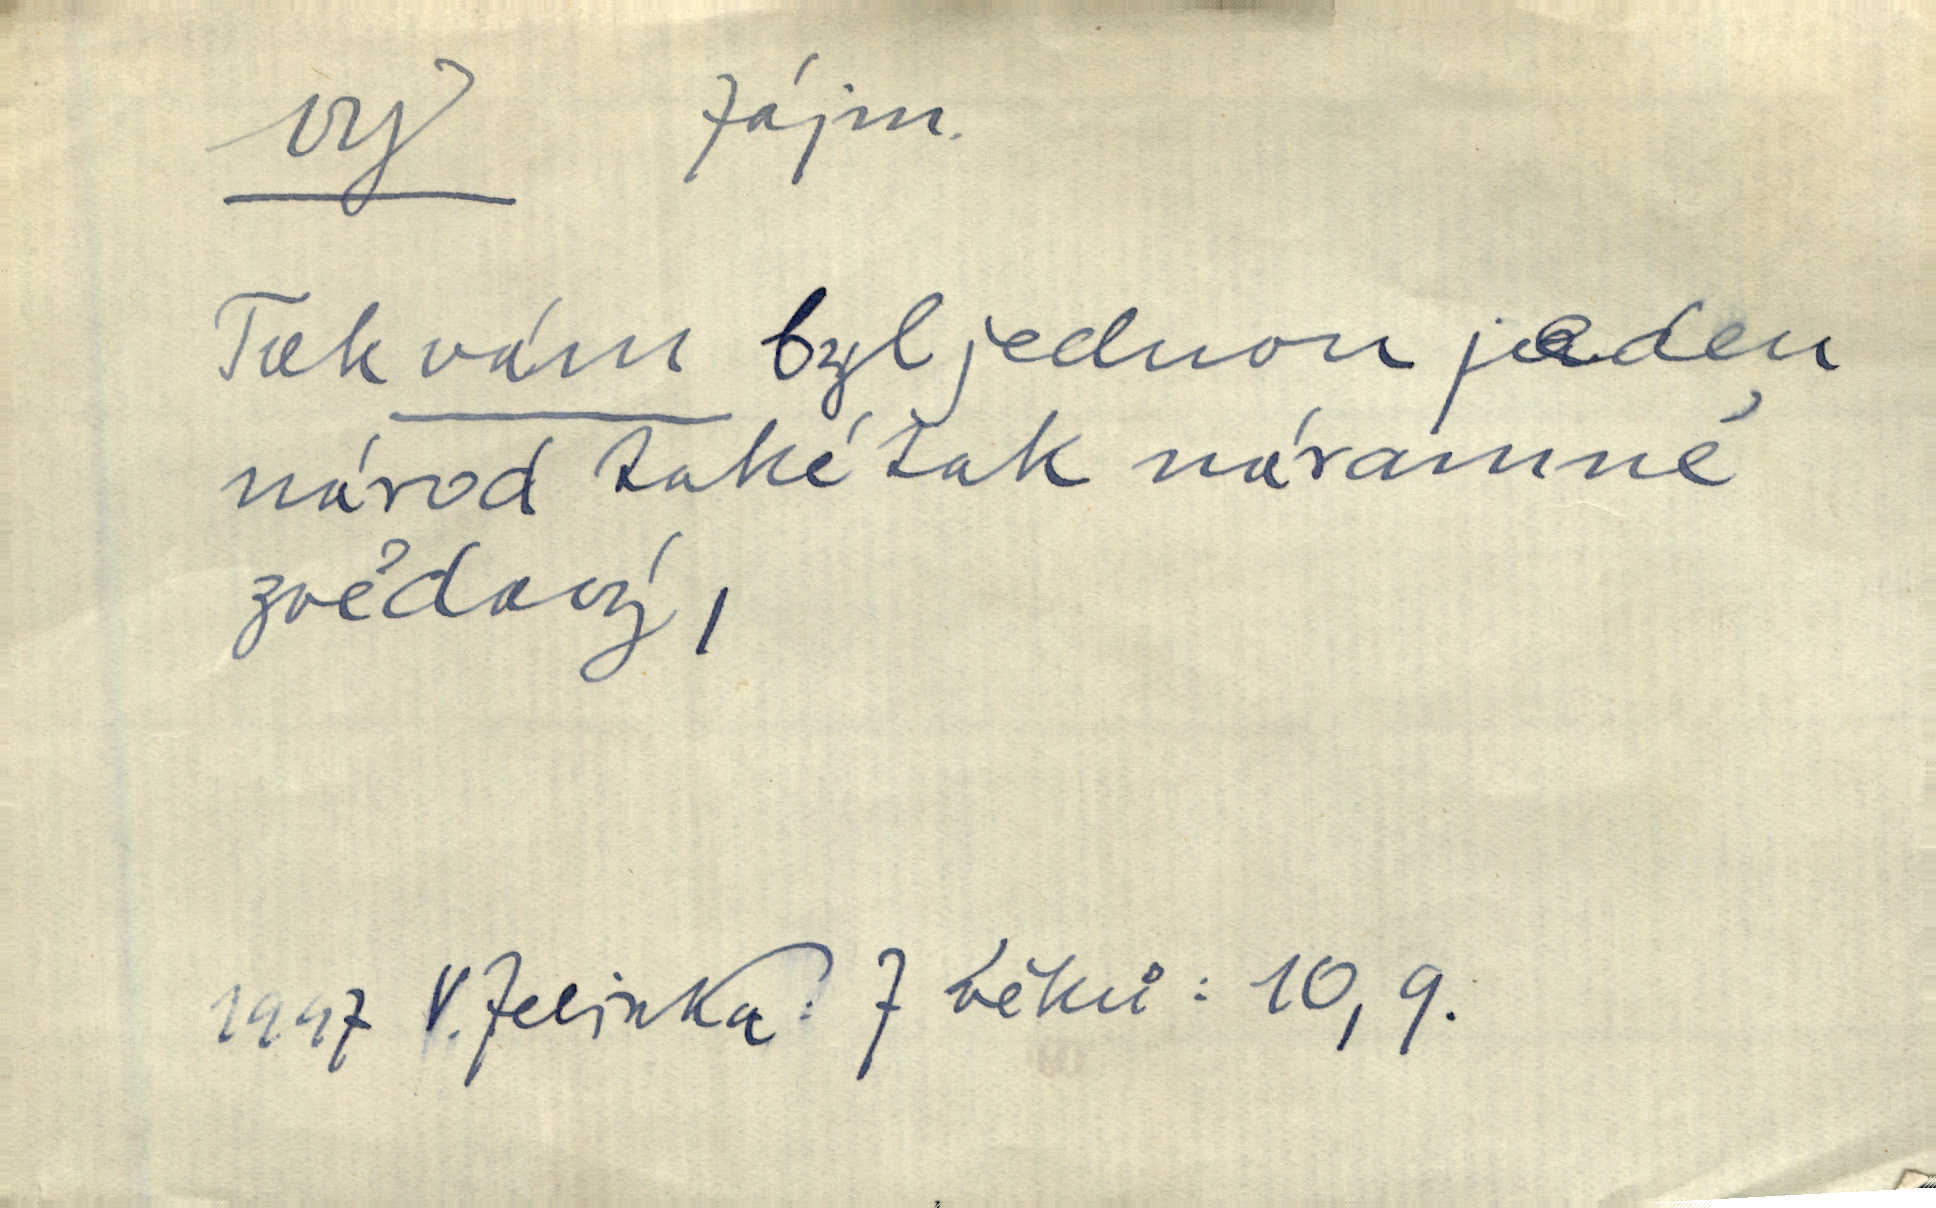 vy zájm.
Tak vám byl jednou jeden
národ také tak náramně
zvědavý,
1947 V. Jelínka: Z věků: 10, 9.